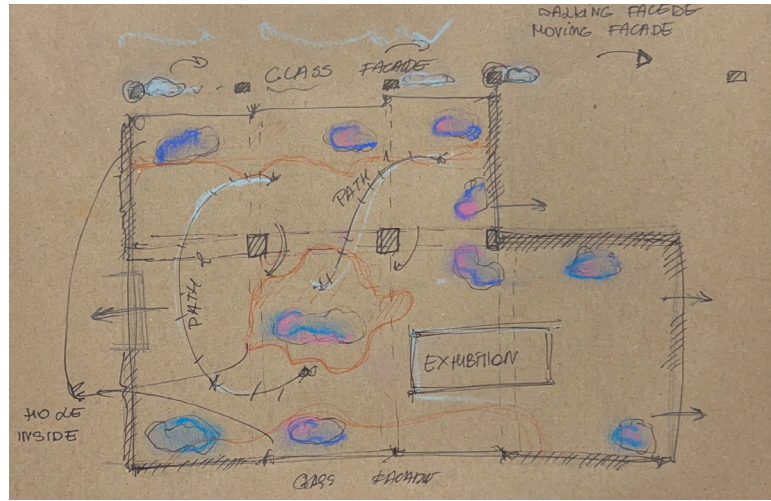 WALKING FACEDE
MOVING FACADE
GLASS FACADE
PATH
PATH
EXHIBITION
INSIDE
FACADE